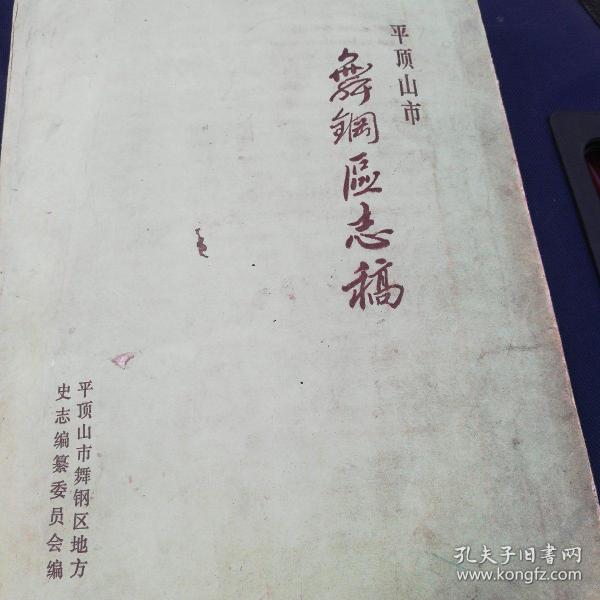 平顶山市
舞鋼區志稿
平顶山市舞钢区地方
史志编纂委员会编
孔夫子旧书网
www.kongfz.com